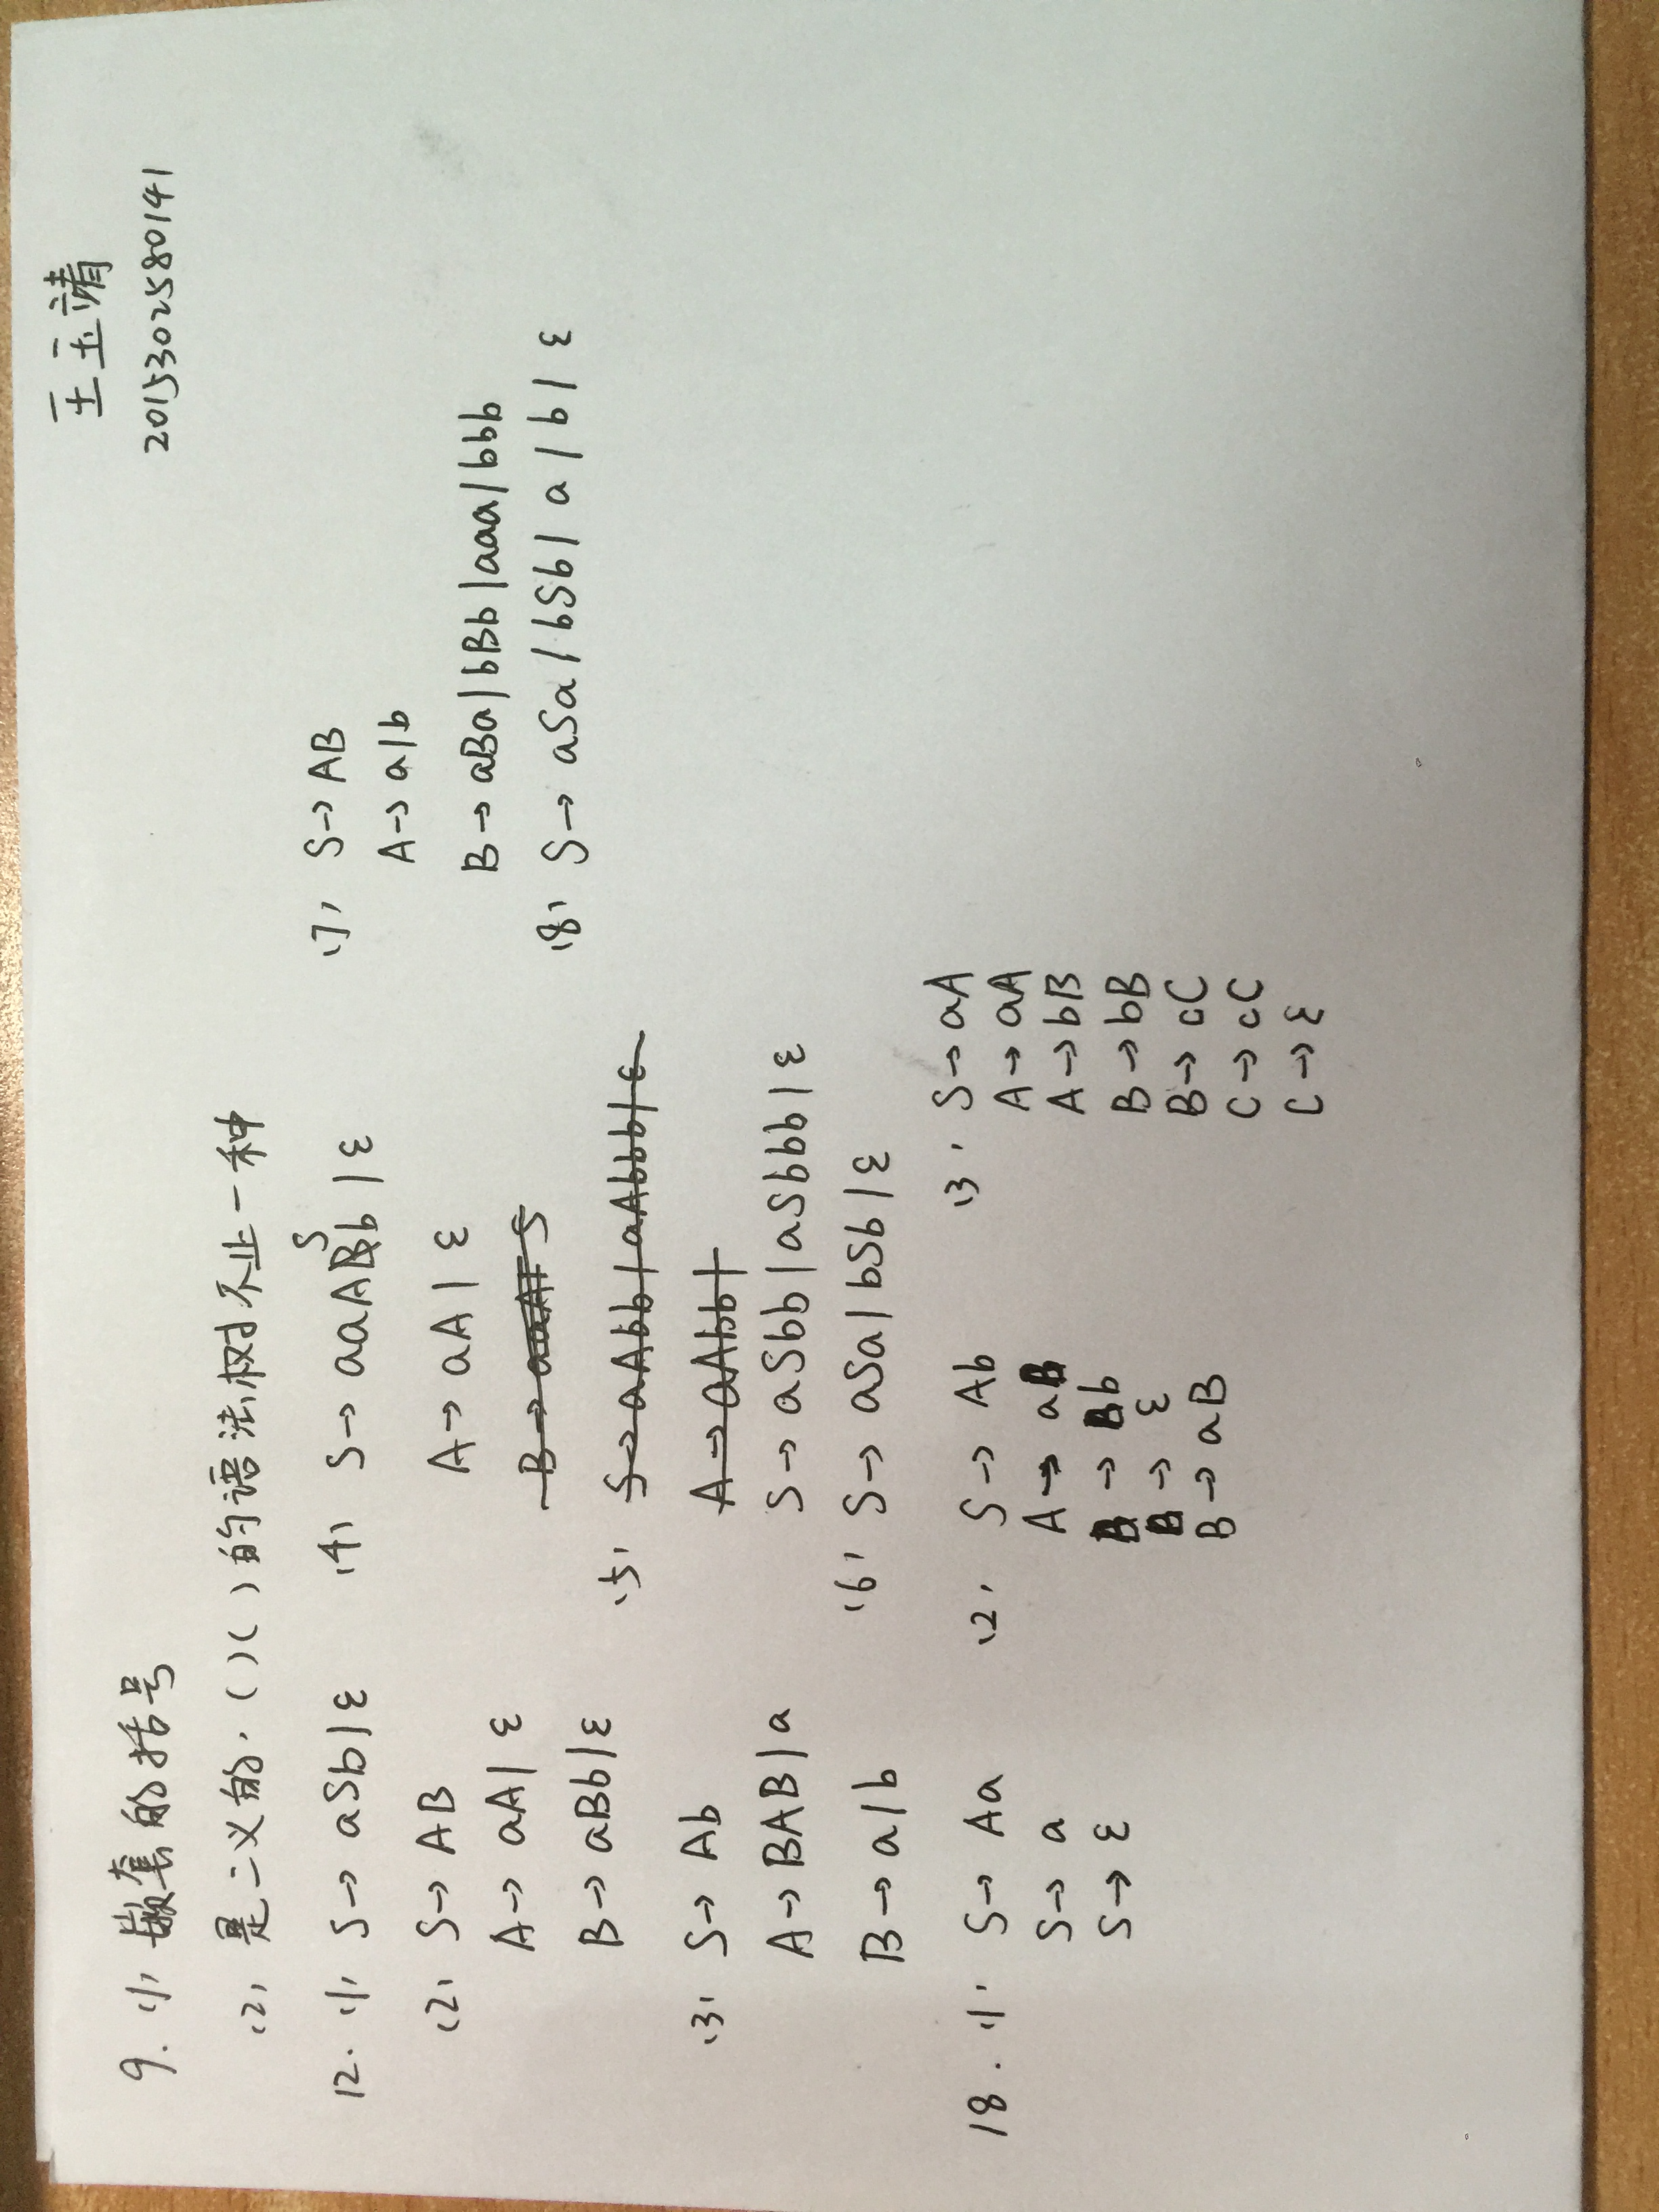 王玉靖
2015302580141
9. (1) 嵌套的括号
(2) 是二义的. ( ) ( ) 的语法树不止一种
12. (1) S→ aSb | ε
(2) S→ AB
A→ aA | ε
B→ aBb | ε
(3) S→ Ab
A→ BAB | a
B→ a | b
(4) S→ aaASb | ε
A→ aA | ε
B→ aaA S
(5) S→ aAbb | aAbbb | ε
A→ aAbb |
S→ aSbb | aSbbb | ε
(6) S→ aSa | bSb | ε
(7) S→ AB
A→ a | b
B→ aBa | bBb | aaa | bbb
(8) S→ aSa | bSb | a | b | ε
18. (1) S→ Aa
S→ a
S→ ε
(2) S→ Ab
A→ aB
B→ Bb
B→ ε
B→ aB
(3) S→ aA
A→ aA
A→ bB
B→ bB
B→ cC
C→ cC
C→ ε